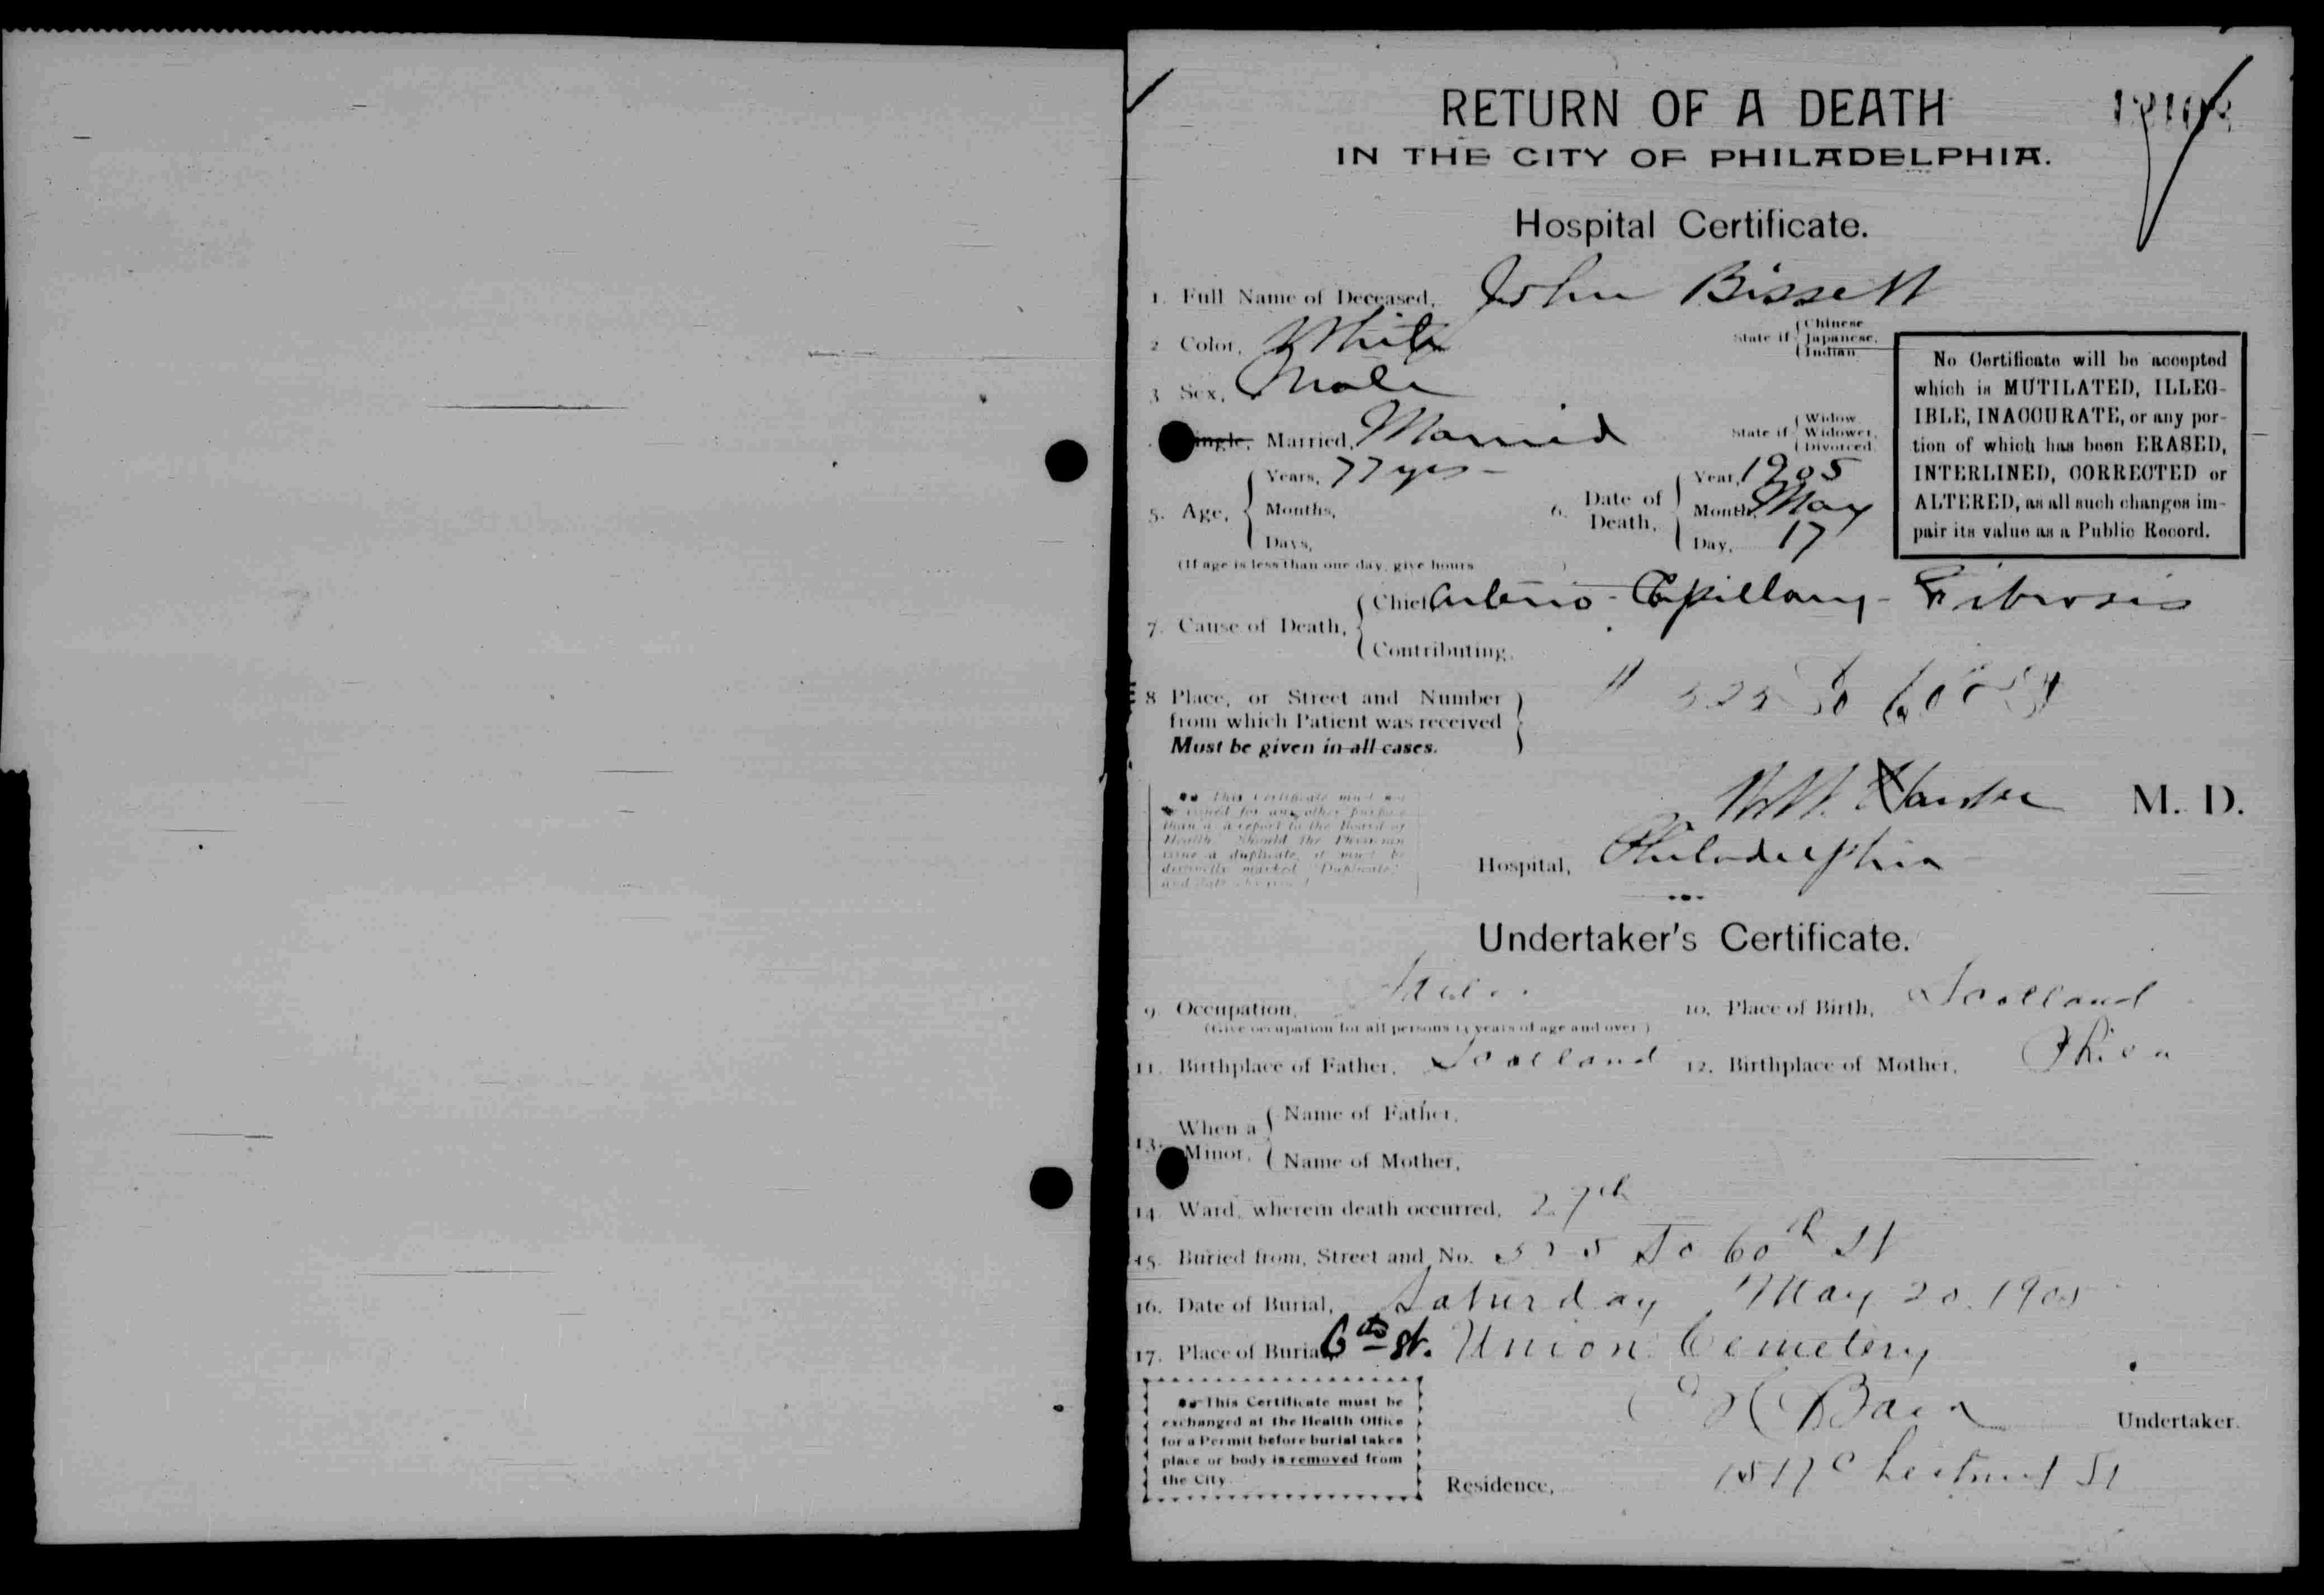 RETURN OF A DEATH
IN THE CITY OF PHILADELPHIA.
Hospital Certificate.
1. Full Name of Deceased, John Bissett
2. Color, White State if { Chinese, Japanese, Indian.
3. Sex, Male
Single, Married, Married State if { Widow, Widower, Divorced.
No Certificate will be accepted
which is MUTILATED, ILLEG-
IBLE, INACCURATE, or any por-
tion of which has been ERASED,
INTERLINED, CORRECTED or
ALTERED, as all such changes im-
pair its value as a Public Record.
5. Age, { Years, 77 yrs -
Months,
Days,
6. Date of Death, { Year, 1905
Month, May
Day, 17
(If age is less than one day, give hours )
7. Cause of Death, { Chief Arterio - Capillary - Fibrosis
Contributing,
8 Place, or Street and Number
from which Patient was received
Must be given in all cases.
So 60 St
M. D.
This Certificate must not
be issued for any other purpose
than as a report to the Board of
Health. Should the Physician
issue a duplicate, it must be
distinctly marked "Duplicate,"
Hospital, Philadelphia
Undertaker's Certificate.
9. Occupation, 10. Place of Birth, Scotland
(Give occupation for all persons 15 years of age and over.)
11. Birthplace of Father, Scotland 12. Birthplace of Mother,
13. When a Minor, { Name of Father,
Name of Mother,
14. Ward, wherein death occurred, 27th
15. Buried from, Street and No. 525 So 60th St
16. Date of Burial, Saturday May 20. 1905
17. Place of Burial, 6th St. Union Cemetery
This Certificate must be
exchanged at the Health Office
for a Permit before burial takes
place or body is removed from
the City.
Bair Undertaker.
Residence, Chestnut St